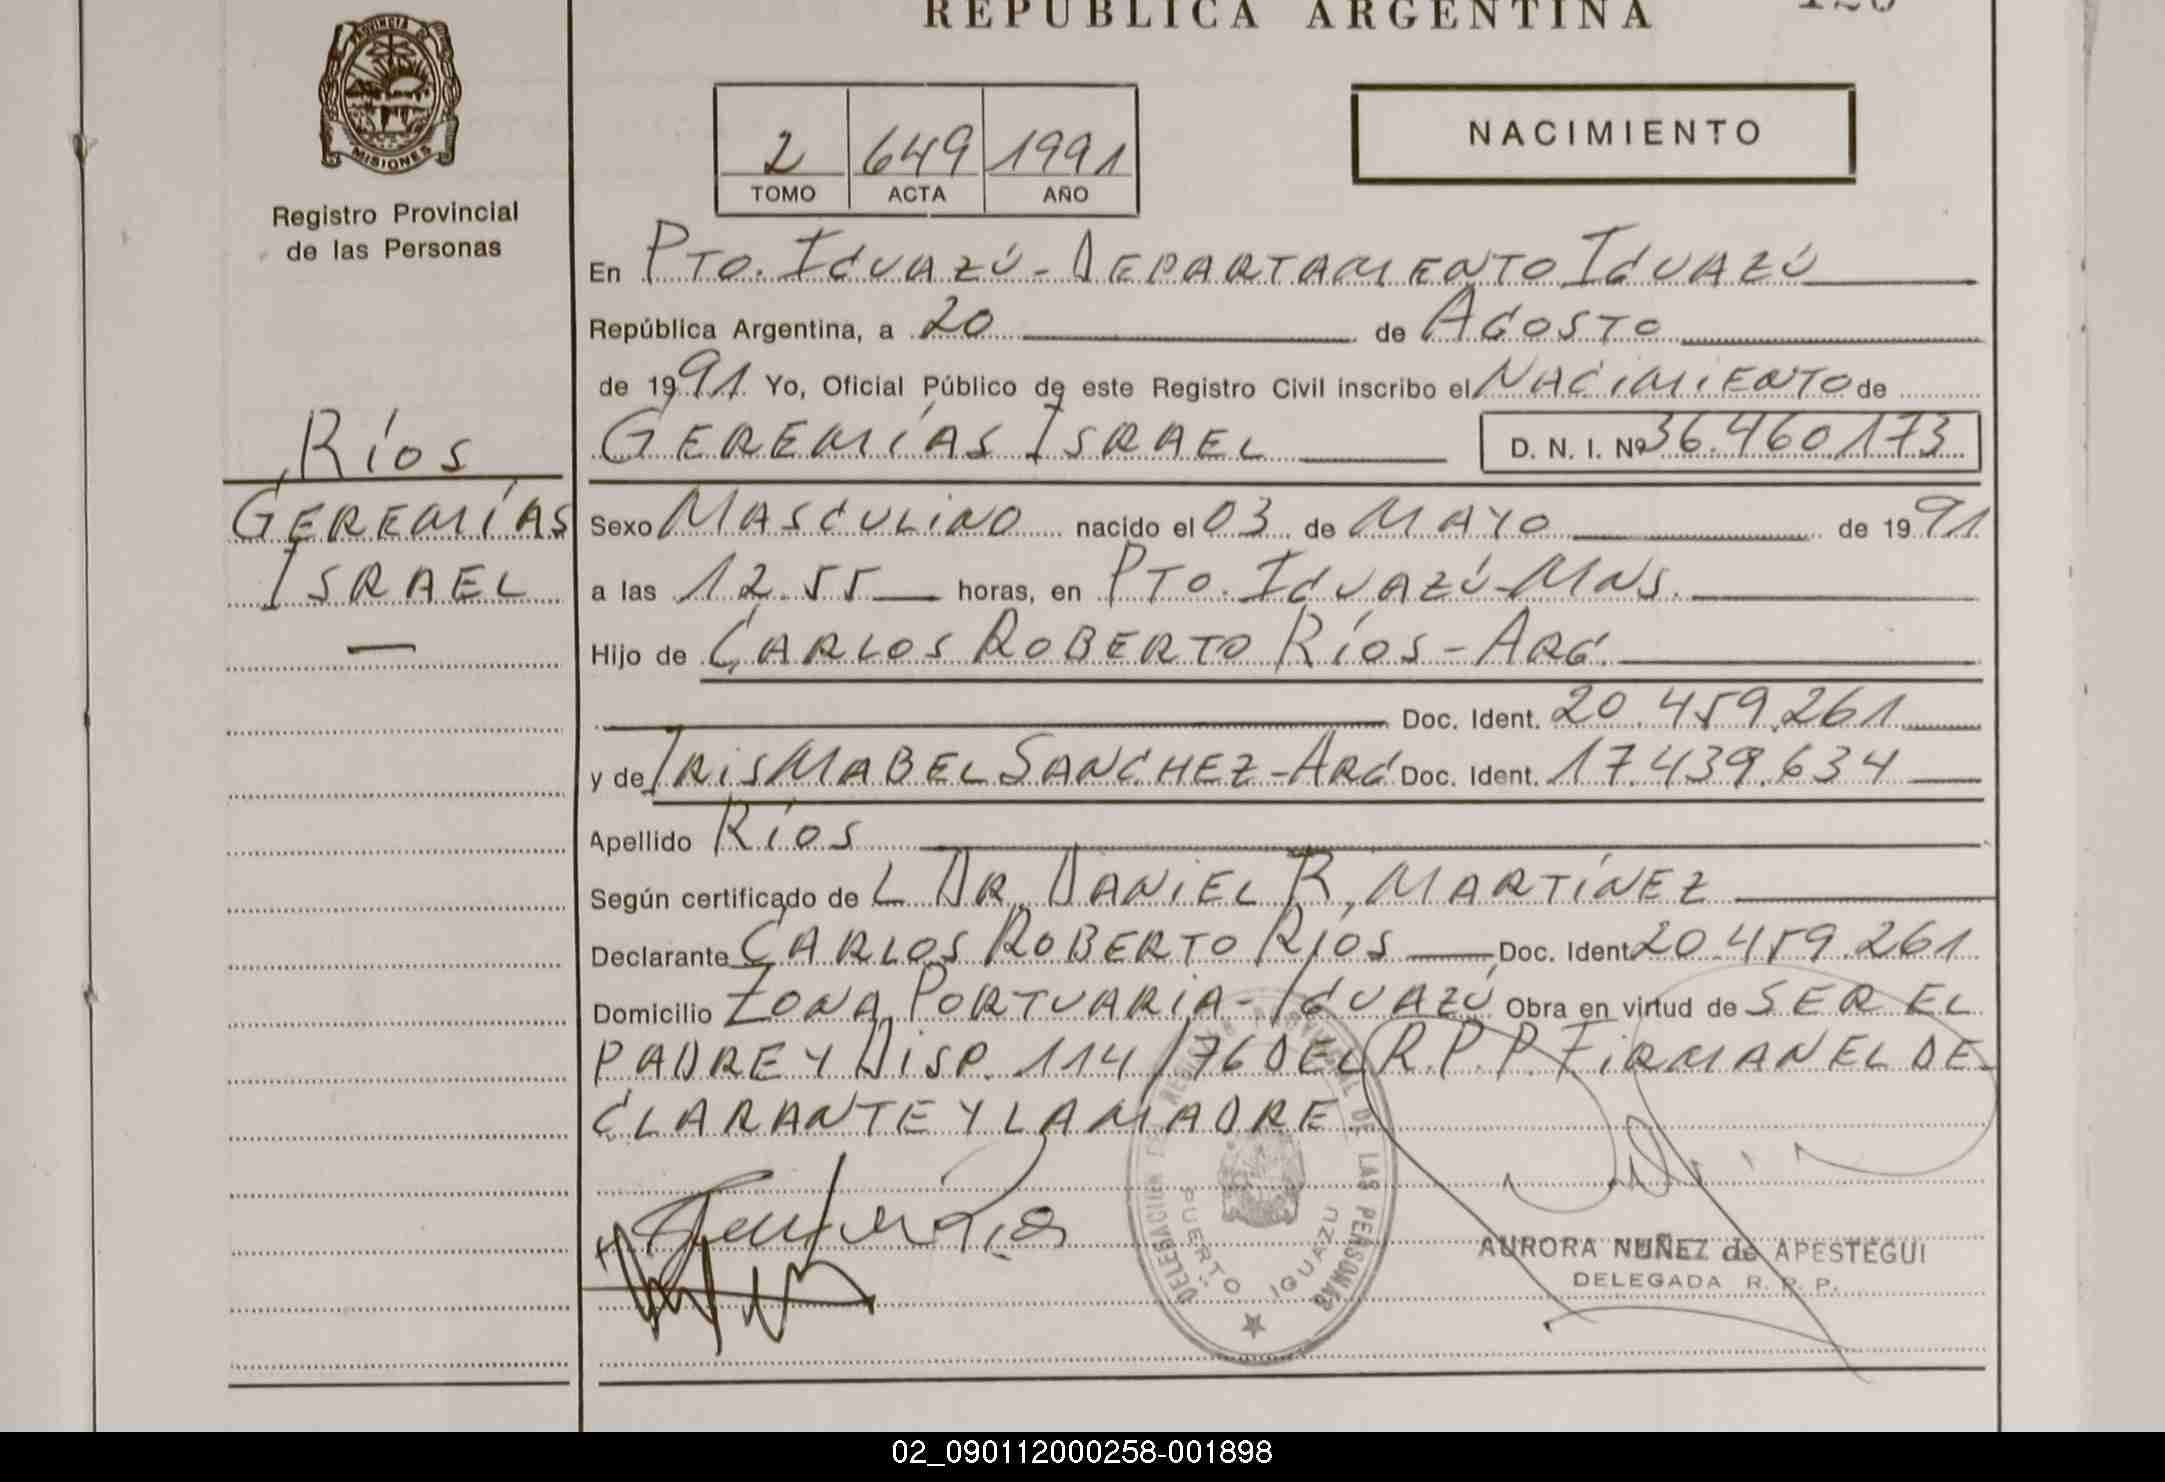 REPUBLICA ARGENTINA
PROVINCIA DE
MISIONES
Registro Provincial
de las Personas
2 649 1991
TOMO ACTA AÑO
NACIMIENTO
En Pto. Iguazú - Departamento Iguazú
República Argentina, a 20 de Agosto
de 1991 Yo, Oficial Público de este Registro Civil inscribo el Nacimiento de
Geremías Israel D. N. I. Nº 36.460.173
Ríos
Geremías
Israel
Sexo Masculino nacido el 03 de Mayo de 1991
a las 12.55 horas, en Pto. Iguazú - Mns.
Hijo de Carlos Roberto Ríos - Arg.
Doc. Ident. 20.459.261
y de Iris Mabel Sanchez - Arg Doc. Ident. 17.439.634
Apellido Ríos
Según certificado de L Dr. Daniel R. Martínez
Declarante Carlos Roberto Ríos Doc. Ident. 20.459.261
Domicilio Zona Portuaria - Iguazú Obra en virtud de ser el
padre y Disp. 114/76 del R.P.P. Firman el de-
clarante y la madre
DELEGACION DEL REGISTRO PROVINCIAL DE LAS PERSONAS
PUERTO IGUAZU
AURORA NUÑEZ de APESTEGUI
DELEGADA R. P. P.
02_090112000258-001898